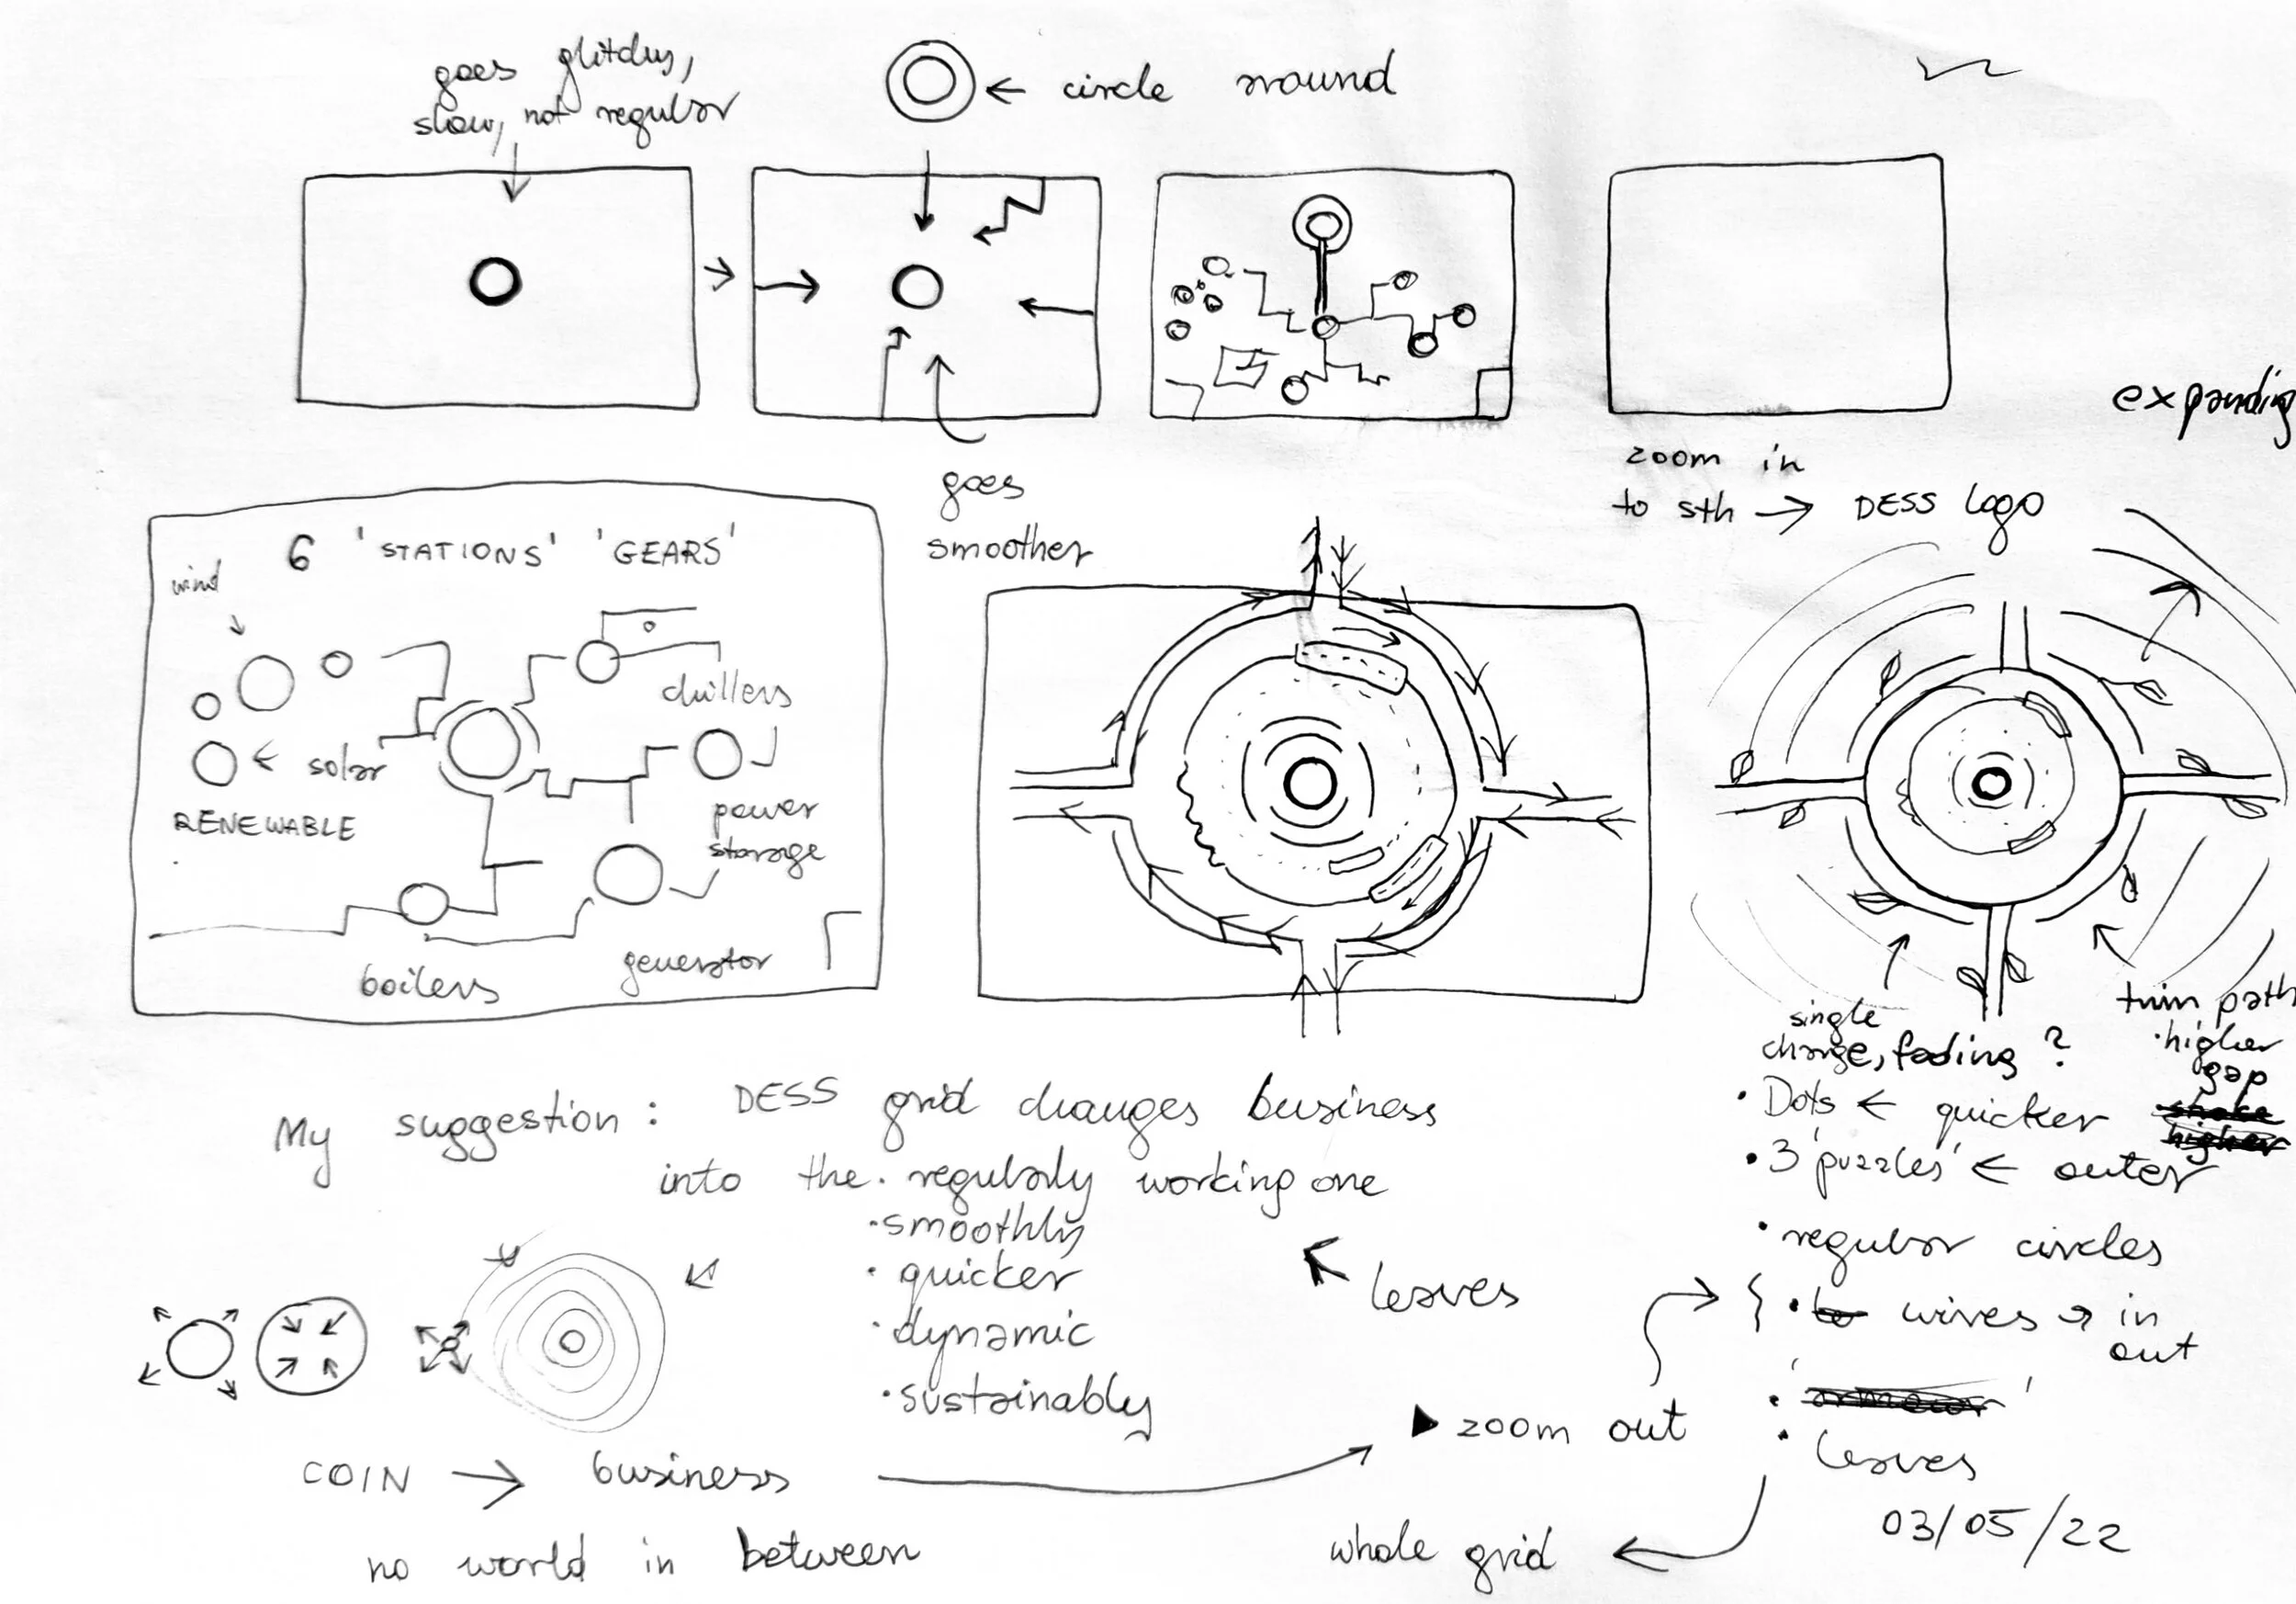 goes glitchy,
slow, not regular
← circle around
zoom in
to sth → DESS logo
expanding
goes
smoother
6 'STATIONS' 'GEARS'
wind
chillers
← solar
RENEWABLE
power
storage
boilers
generator
single
change, fading ?
twin path
• higher
gap
• Dots ← quicker
• 3 'puzzles' ← outer
• regular circles
• wires → in
out
• leaves
03/05/22
My suggestion : DESS grid changes business
into the • regularly working one
• smoothly
• quicker
• dynamic
• sustainably
leaves
▶ zoom out
COIN → business
no world in between
whole grid